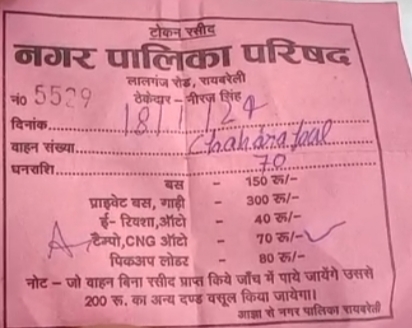 टोकन रसीद
नगर पालिका परिषद
लालगंज रोड, रायबरेली
नं० 5529 ठेकेदार – नीरज सिंह
दिनांक 18/1/24
वाहन संख्या
धनराशि 70
बस - 150 रू/-
प्राइवेट बस, गाड़ी - 300 रू/-
ई- रिक्शा,ऑटो - 40 रू/-
टैम्पो,CNG ऑटो - 70 रू/-
पिकअप लोडर - 80 रू/-
नोट – जो वाहन बिना रसीद प्राप्त किये जाँच में पाये जायेंगे उससे
200 रू. का अन्य दण्ड वसूल किया जायेगा।
आज्ञा से नगर पालिका रायबरेली